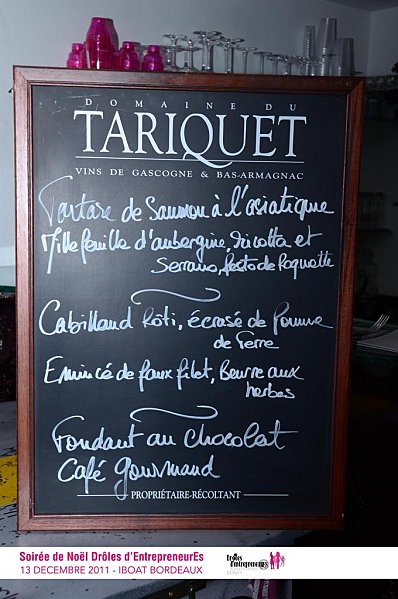 DOMAINE DU
TARIQUET
VINS DE GASCOGNE & BAS-ARMAGNAC
Tartare de Saumon à l'asiatique
Mille feuille d'aubergine, Ricotta et
Serrano, Pesto de Roquette
Cabillaud Rôti, écrasé de Pomme
de Terre
Emincé de faux filet, Beurre aux
herbes
Fondant au chocolat
Café gourmand
PROPRIÉTAIRE-RÉCOLTANT
Soirée de Noël Drôles d'EntrepreneurEs
13 DECEMBRE 2011 - IBOAT BORDEAUX
Drôles
d'entrepreneurEs